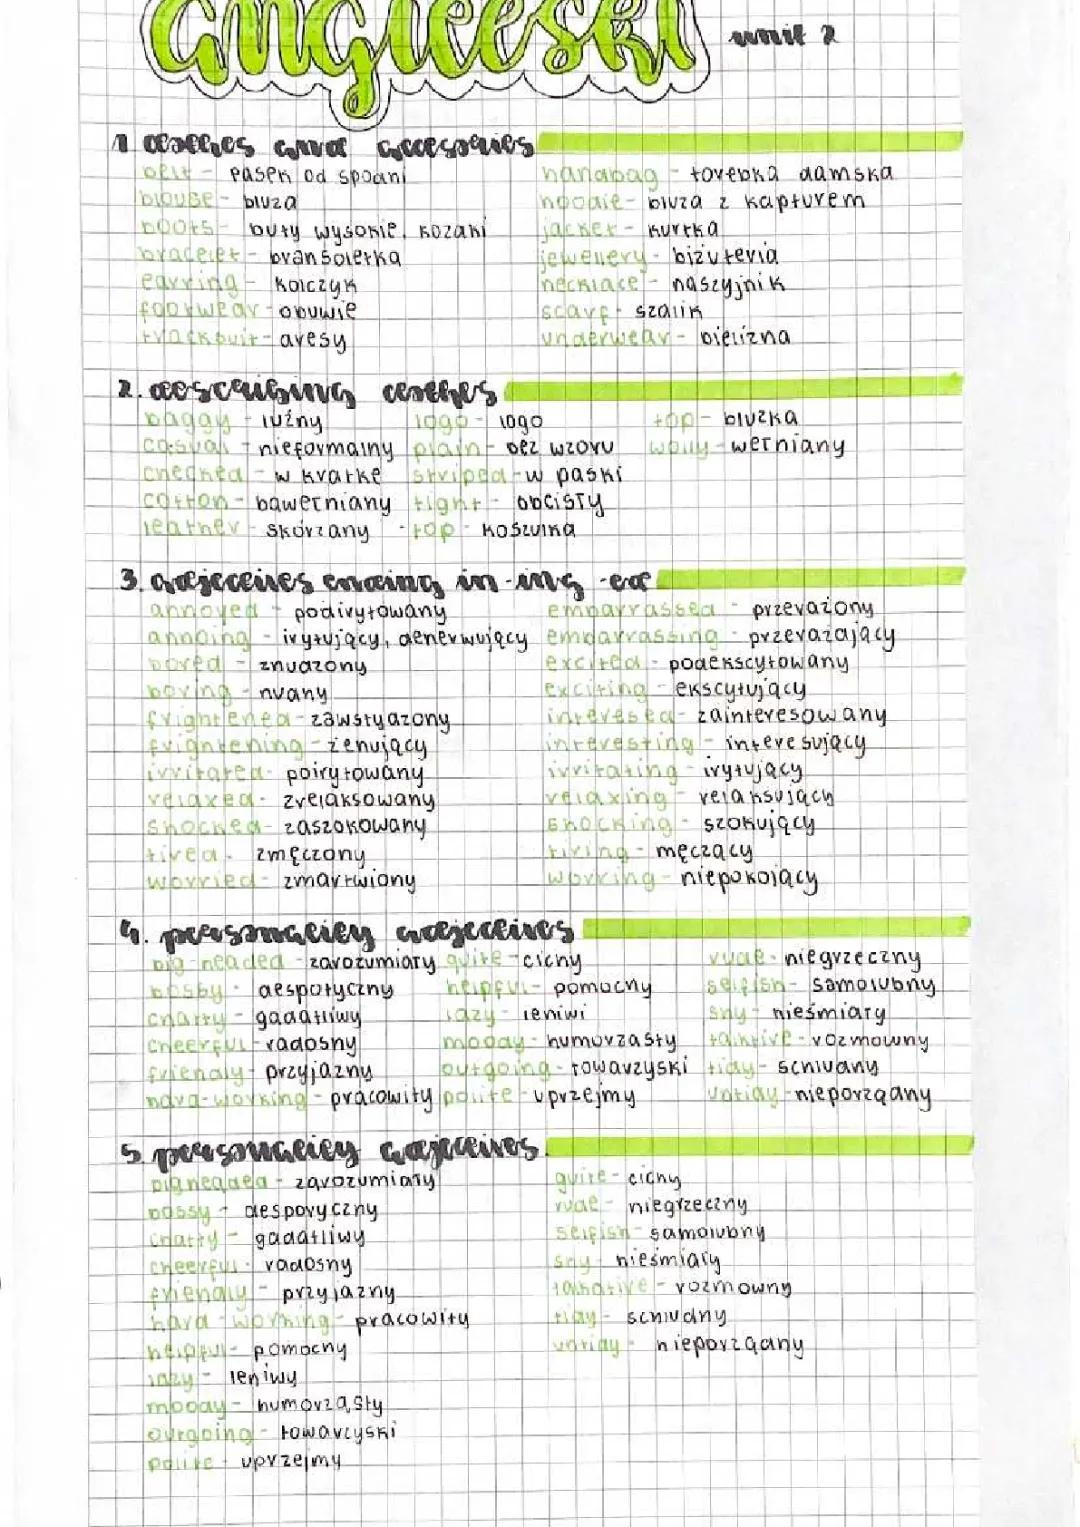 angielski unit 2
1 clothes and accesories
belt - pasek od spodni
handbag - torebka damska
blouse - bluza
hoodie - bluza z kapturem
boots - buty wysokie, kozaki
jacket - kurtka
bracelet - bransoletka
jewellery - biżuteria
earring - kolczyk
necklace - naszyjnik
footwear - obuwie
scarf - szalik
tracksuit - dresy
underwear - bielizna
2. describing clothes
baggy - luźny logo - logo top - bluzka
casual - nieformalny plain - bez wzoru wolly - wełniany
checked - w kratkę striped - w paski
cotton - bawełniany tight - obcisły
leather - skórzany - top - koszulka
3. adjectives ending in -ing -ed
annoyed - podirytowany
embarrassed - przerażony
annoing - irytujący, denerwujący
embarrassing - przerażający
bored - znudzony
excited - podekscytowany
boring - nudny
exciting - ekscytujący
frightened - zawstydzony
interesed - zainteresowany
frightening - żenujący
interesting - interesujący
irritated - poirytowany
irritating - irytujący
relaxed - zrelaksowany
relaxing - relaksujący
shocked - zaszokowany
shocking - szokujący
tired - zmęczony
tiring - męczący
worried - zmartwiony
working - niepokojący
4. personality adjectives
big-headed - zarozumiały quite - cichy rude - niegrzeczny
bossy - despotyczny helpful - pomocny selfish - samolubny
chatty - gadatliwy lazy - leniwi shy - nieśmiały
cheerful - radosny moody - humorzasty talktive - rozmowny
friendly - przyjazny outgoing - towarzyski tidy - schludny
hard-working - pracowity polite - uprzejmy untiday - nieporządany
5 personality adjectives
bigheaded - zarozumiały
quite - cichy
bossy - desporyczny
rude - niegrzeczny
chatty - gadatliwy
selfish - samolubny
cheerful - radosny
shy - nieśmiały
friendly - przyjazny
talkative - rozmowny
hard-working - pracowity
tiday - schludny
helpful - pomocny
untiday - nieporządany
lazy - leniwy
moody - humorzasty
outgoing - towarzyski
polite - uprzejmy